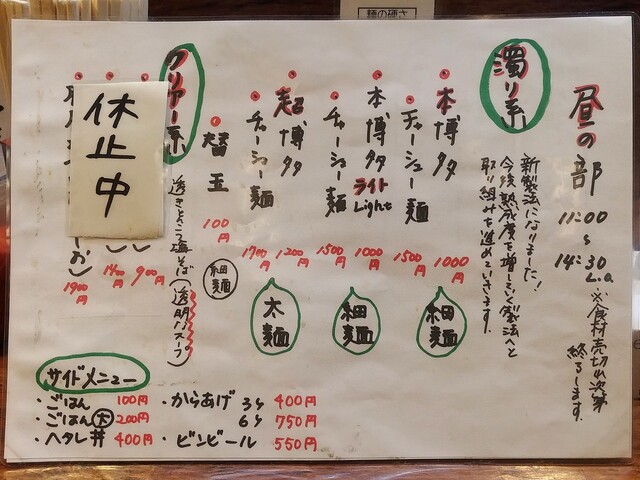 麺の硬さ
昼の部
11:00
〜
14:30
L.o
※食材売切れ次第
終了します。
濁り系
新製法になりました!
今後熟成度を増していく製法へと
取り組みを進めていきます。
本博多 1000円
チャーシュー麺 1500円
細麺
本博多ライトLight 1000円
チャーシュー麺 1500円
細麺
超博多 1200円
チャーシュー麺 1700円
太麺
替玉 100円
細麺
クリアー系
透きとおった塩そば(透明なスープ)
休止中
900円
1400円
1900円
サイドメニュー
・ごはん 100円
・ごはん大 200円
・ヘタレ丼 400円
・からあげ 3ケ 400円
6ケ 750円
・ビンビール 550円